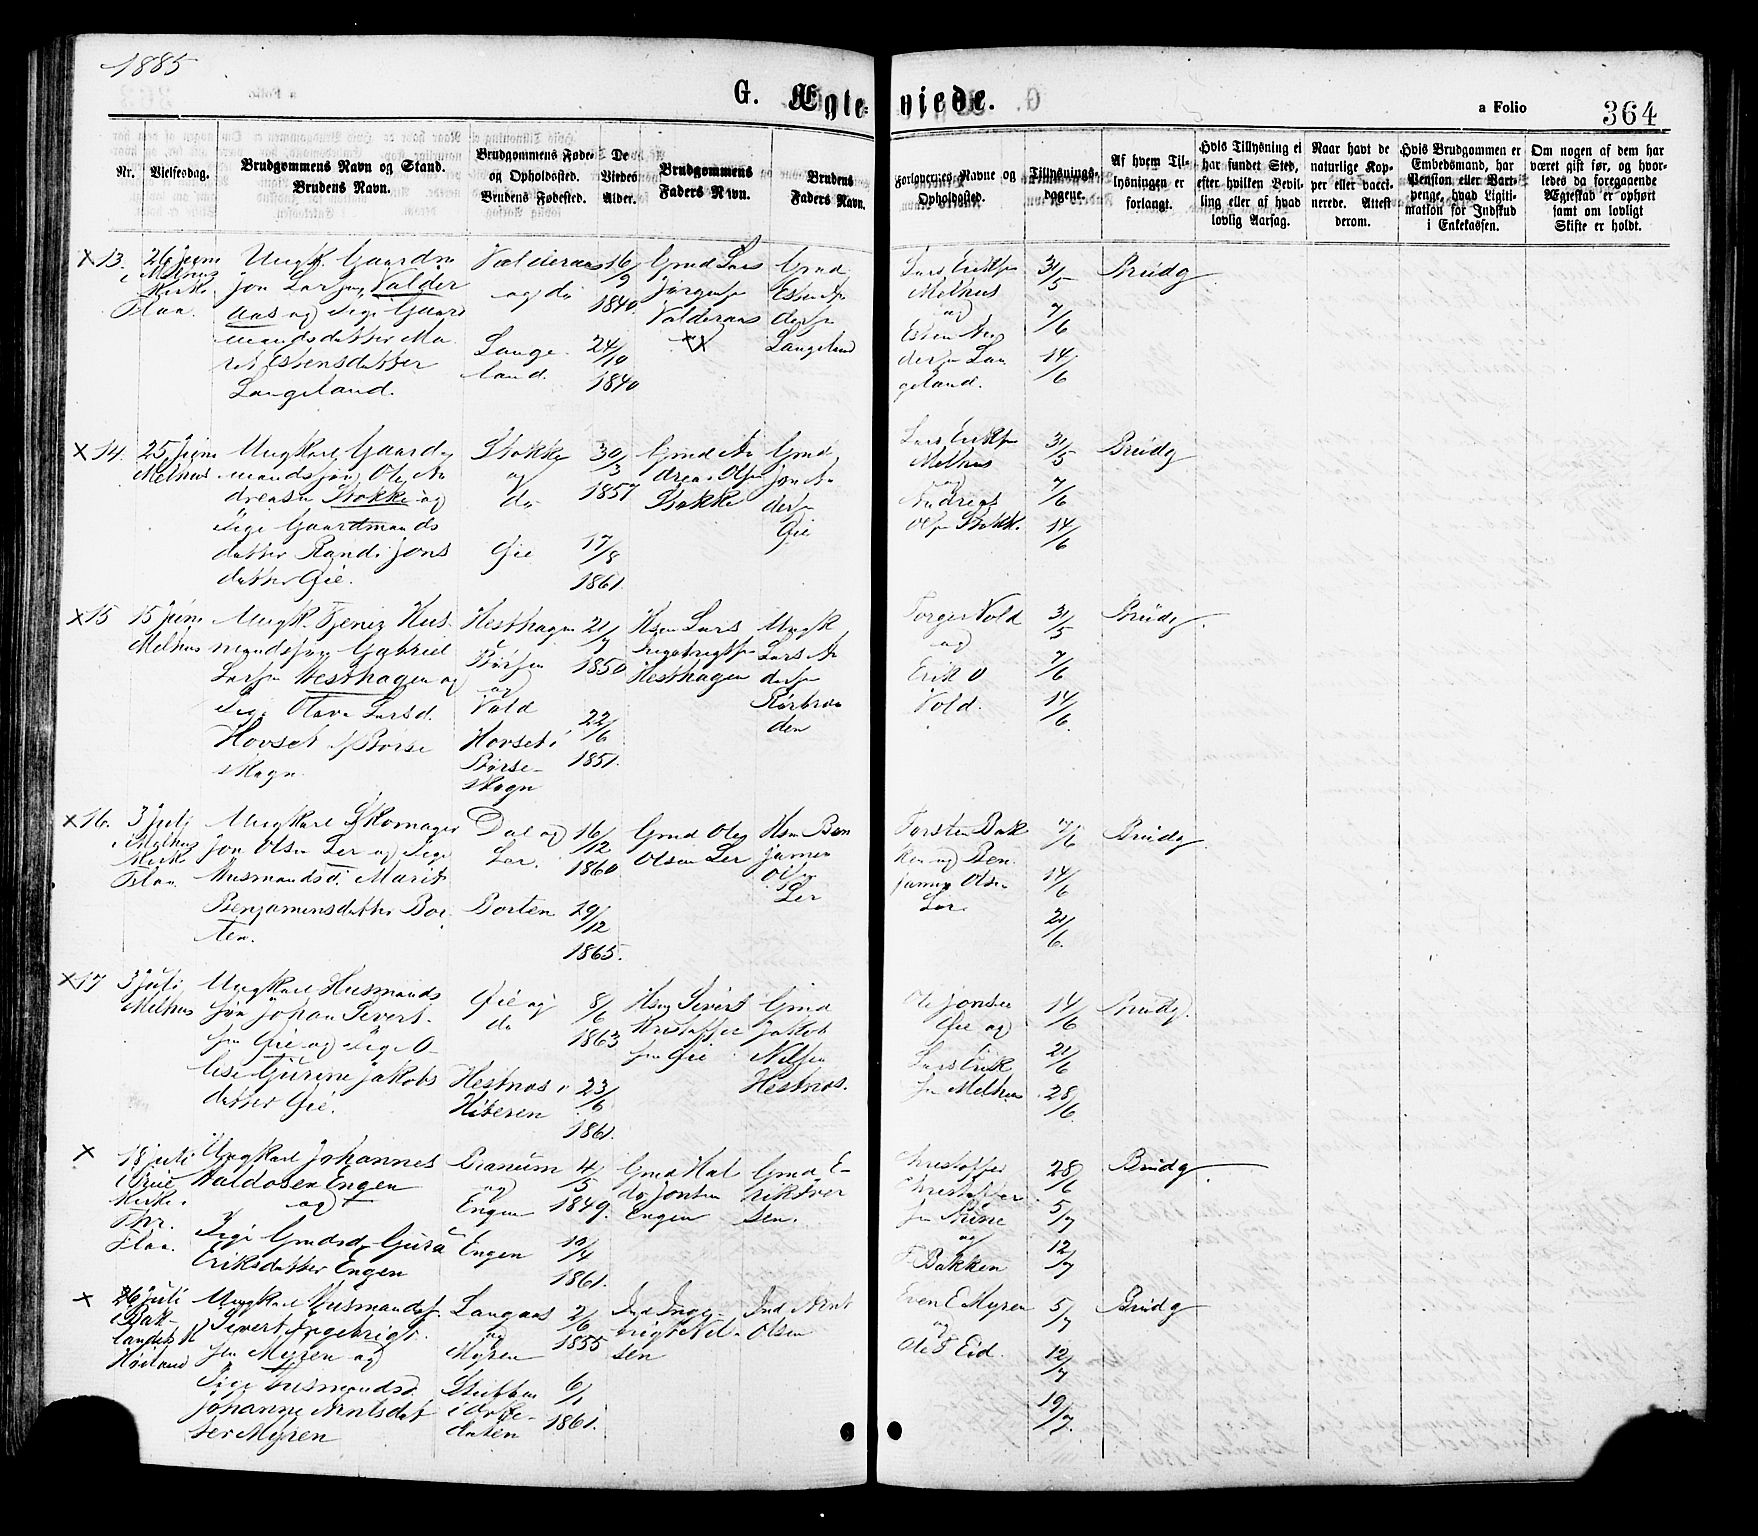 1885
G. Ægte-
viede.
a Folio
364
Nr.
Vielsesdag.
Brudgommens Navn og Stand.
Brudens Navn.
Brudgommens Føde-
og Opholdssted.
Brudens Fødested.
De
Viedes
Alder.
Brudgommens
Faders Navn.
Brudens
Faders Navn.
Forlovernes Navne og
Opholdssted.
Tillysnings-
dagene.
Af hvem Til-
lysningen er
forlangt.
Hvis Tillysning ei
har fundet Sted,
efter hvilken Bevil-
ling eller af hvad
lovlig Aarsag.
Naar havt de
naturlige Kop-
per eller vacci-
nerede. Attest
derom.
Hvis Brudgommen er
Embedsmand, har
Pension eller Vart-
penge, hvad Ligiti-
mation for Indskud
i Enkekassen.
Om nogen af dem har
været gift før, og hvor-
ledes da foregaaende
Ægteskab er ophørt
samt om lovligt
Skifte er holdt.
x 13.
26 Juni
i Melhus
Kirke
Flaa.
Ungk. Gaardm
Jon Larsen Valder
aas og Pige Gaard
mandsdatter Ma
rit Estensdatter
Langeland.
Valderaas
og do
Lange
land.
16/9
1840.
24/10
1840
Gmd Lars
Jørgensen
Valderaas
Gmd
Esten An
dersen
Langeland
Lars Eriksen
Melhus
og
Esten An
dersen Lan
geland.
31/5
7/6
14/6
Brudg.
x 14.
25 Juni
Melhus
Ungkarl Gaard
mandssøn Ole An
dreasen Stokke og
Pige Gaardmands
datter Randi Jons
datter Øie.
Stokke
og
do
Øie
30/3
1857
17/8
1861.
Gmd An
dreas Olsen
Stokke
Gmd
Jon An
dersen
Øie
Lars Eriksen
Melhus
og
Andreas
Olsen Stokk.
31/5
7/6
14/6
Brudg
x 15
15 Juni
Melhus
Ungk. Tjener Hus
mandssøn Gabriel
Larsen Hesthagen og
Pige Olava Larsd.
Hovset i Børse
skogn.
Hesthagen
i Børsen
og
Vold
Hovset i
Børse-
skogn
21/7
1850
22/6
1851.
Hsm Lars
Ingebrigtsen
Hesthagen
Ungk
Lars An
dersen
den
Torger Vold
og
Erik O
Vold.
31/5
7/6
14/6.
Brudg.
x 16.
3 Juli
i Melhus
Kirke
Flaa.
Ungkarl Skomager
Jon Olsen Ler og Pige
Husmandsd. Marit
Benjaminsdatter Bor
ten.
Dal og
Ler.
Borten
16/12
1860
29/12
1865.
Gmd Ole
Olsen Ler
Hsm Ben
jamin
Olsen
Ler
Torsten Bak
ken og Ben
jamin Olsen
Ler
7/6
14/6
21/6.
Brudg.
x 17
3 Juli
Melhus
Ungkarl Husmands
søn Johan Sivert
sen Øie og Pige O-
lise Gurine Jakobs
datter Øie.
Øie og
do
Hestnes i
Hiteren
8/6
1863
23/6
1861.
Hsm Sivert
Kristoffer
sen Øie
Gmd
Jakob
Nilsen
Hestnes.
Ole Jonsen
Øie og
Lars Erik
sen Melhus
14/6
21/6
28/6.
Brudg.
x
18 Juli
Kirke.
Thr.
Flaa.
Ungkarl Johannes
Haldosen Engen
og
Pige Gmdsd. Guru
Eriksdatter Engen
og
Engen
Engen
4/5
1849.
10/4
1861.
Gmd Hal
do Jonsen
Engen
Gmd E-
rik Iver
sen.
Christoffer
Christoffer
sen
og
Bakken
28/6
5/7
12/7
Brudg.
x
26 Juli
i Bak-
landets K
Ungkarl Husmandss.
Sivert Ingebrigt
sen Myren og
Pige Husmandsd.
Johanne Arntsdat
ter Myren
Langaas
og
Myren
2/6
1855
6/1
1861.
Ind Inge-
brigt Nil-
sen
Ind Arnt
Olsen
Even E Myren
og
Ole T Eid.
5/7
12/7
19/7.
Brudg